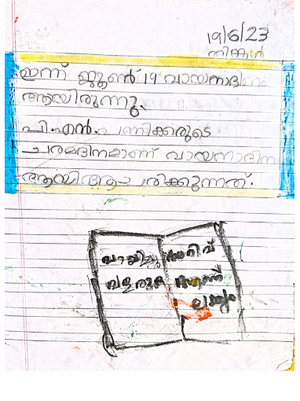 19/6/23
തിങ്കൾ
ഇന്ന് ജൂൺ 19 വായനാദിനം
ആയിരുന്നു.
പി.എൻ.പണിക്കരുടെ
ചരമദിനമാണ് വായനാദിന
ആയി ആചരിക്കുന്നത്.
വായിച്ചു
വളരുക
അറിവ്